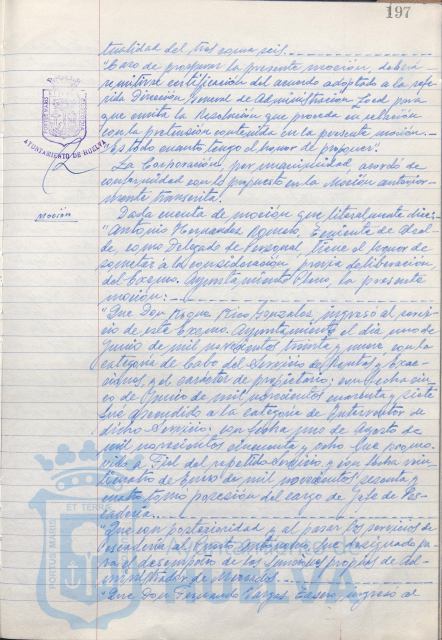 197
tualidad del tres coma seis.
"Caso de prosperar la presente moción, deberá
remitirse certificación del acuerdo adoptado a la refe-
rida Dirección General de Administración Local para
que emita la Resolución que proceda en relación
con la pretensión contenida en la presente moción.-
Es todo cuanto tengo el honor de proponer".
La Corporación, por unanimidad, acordó de
conformidad con lo propuesto en la Moción anterior-
mente transcrita.
AYUNTAMIENTO DE HUELVA
Moción
Dada cuenta de moción que literalmente dice:
"Antonio Hernández Romero, Teniente de Alcal-
de, como Delegado de Personal, tiene el honor de
someter a la consideración y previa deliberación
del Excmo. Ayuntamiento Pleno, la presente
moción:
"Que Don Roque Rico González, ingresó al servi-
cio de este Excmo. Ayuntamiento el día uno de
Junio de mil novecientos treinta y nueve, con la
categoría de Cabo del Servicio de Rentas y Exac-
ciones, y el carácter de propietario; con fecha cin-
co de Junio de mil novecientos cuarenta y siete
fue ascendido a la categoría de Interventor de
dicho Servicio; con fecha uno de Agosto de
mil novecientos cincuenta y ocho fue promo-
vido a Fiel del repetido Servicio, y con fecha vein-
ticuatro de Enero de mil novecientos sesenta y
cuatro tomó posesión del cargo de Jefe de Pes-
cadería.
"Que con posterioridad y al pasar los servicios de
Pescadería al fue designado pa-
ra el desempeño de las funciones propias de Ad-
ministrador de Mercados.
"Que Don Fernando Vargas ingresó al
PORTUS MARIS
ET TERRAE
HUELVA